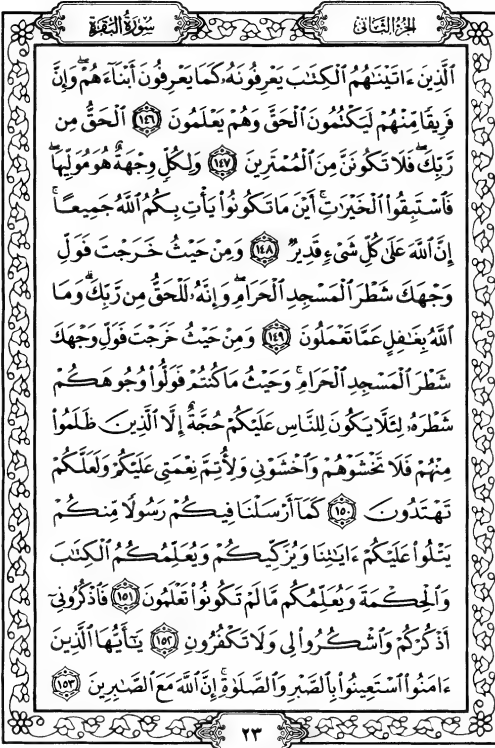 سُورَةُ البَقَرَةِ
الجُزْءُ الثَّانِي
الَّذِينَ ءَاتَيْنَٰهُمُ الْكِتَٰبَ يَعْرِفُونَهُۥ كَمَا يَعْرِفُونَ أَبْنَآءَهُمْ ۖ وَإِنَّ
فَرِيقًا مِّنْهُمْ لَيَكْتُمُونَ الْحَقَّ وَهُمْ يَعْلَمُونَ ١٤٦ الْحَقُّ مِن
رَّبِّكَ ۖ فَلَا تَكُونَنَّ مِنَ الْمُمْتَرِينَ ١٤٧ وَلِكُلٍّ وِجْهَةٌ هُوَ مُوَلِّيهَا ۖ
فَاسْتَبِقُوا۟ الْخَيْرَٰتِ ۚ أَيْنَ مَا تَكُونُوا۟ يَأْتِ بِكُمُ اللَّهُ جَمِيعًا ۚ
إِنَّ اللَّهَ عَلَىٰ كُلِّ شَىْءٍ قَدِيرٌ ١٤٨ وَمِنْ حَيْثُ خَرَجْتَ فَوَلِّ
وَجْهَكَ شَطْرَ الْمَسْجِدِ الْحَرَامِ ۖ وَإِنَّهُۥ لَلْحَقُّ مِن رَّبِّكَ ۗ وَمَا
اللَّهُ بِغَٰفِلٍ عَمَّا تَعْمَلُونَ ١٤٩ وَمِنْ حَيْثُ خَرَجْتَ فَوَلِّ وَجْهَكَ
شَطْرَ الْمَسْجِدِ الْحَرَامِ ۚ وَحَيْثُ مَا كُنتُمْ فَوَلُّوا۟ وُجُوهَكُمْ
شَطْرَهُۥ لِئَلَّا يَكُونَ لِلنَّاسِ عَلَيْكُمْ حُجَّةٌ إِلَّا الَّذِينَ ظَلَمُوا۟
مِنْهُمْ فَلَا تَخْشَوْهُمْ وَاخْشَوْنِى وَلِأُتِمَّ نِعْمَتِى عَلَيْكُمْ وَلَعَلَّكُمْ
تَهْتَدُونَ ١٥٠ كَمَآ أَرْسَلْنَا فِيكُمْ رَسُولًا مِّنكُمْ
يَتْلُوا۟ عَلَيْكُمْ ءَايَٰتِنَا وَيُزَكِّيكُمْ وَيُعَلِّمُكُمُ الْكِتَٰبَ
وَالْحِكْمَةَ وَيُعَلِّمُكُم مَّا لَمْ تَكُونُوا۟ تَعْلَمُونَ ١٥١ فَاذْكُرُونِىٓ
أَذْكُرْكُمْ وَاشْكُرُوا۟ لِى وَلَا تَكْفُرُونِ ١٥٢ يَٰٓأَيُّهَا الَّذِينَ
ءَامَنُوا۟ اسْتَعِينُوا۟ بِالصَّبْرِ وَالصَّلَوٰةِ ۚ إِنَّ اللَّهَ مَعَ الصَّٰبِرِينَ ١٥٣
٢٣